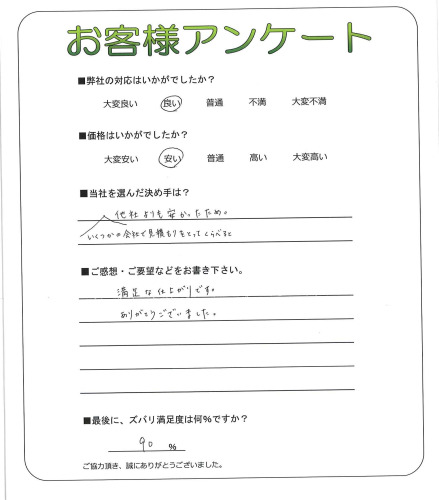 お客様アンケート
■弊社の対応はいかがでしたか？
大変良い 良い 普通 不満 大変不満
■価格はいかがでしたか？
大変安い 安い 普通 高い 大変高い
■当社を選んだ決め手は？
他社よりも安かったため。
いくつかの会社で見積もりをとってくらべると
■ご感想・ご要望などをお書き下さい。
満足な仕上がりです。
ありがとうございました。
■最後に、ズバリ満足度は何%ですか？
90 %
ご協力頂き、誠にありがとうございました。